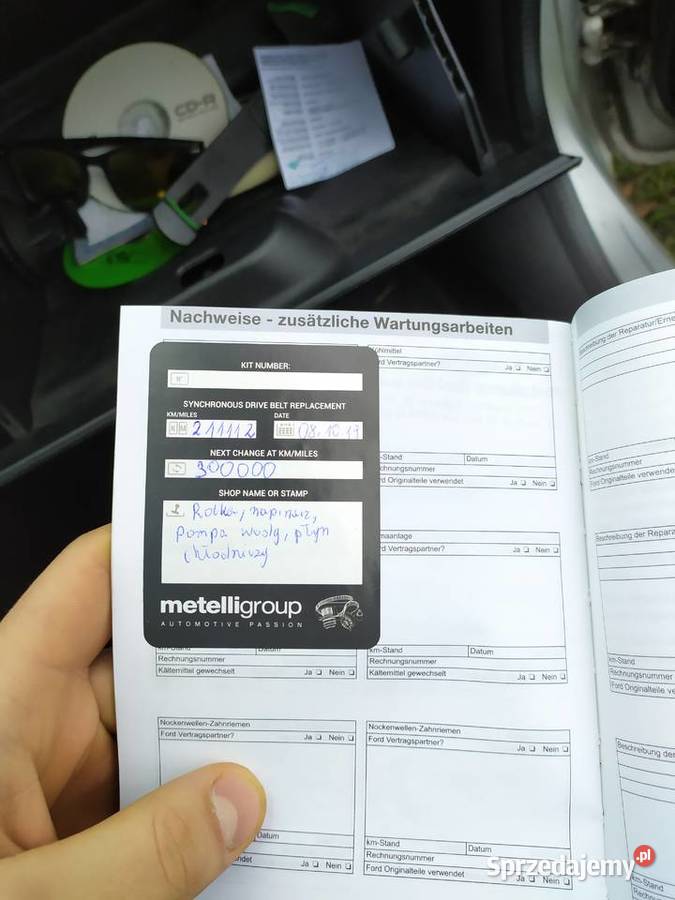 CD-R
Nachweise - zusätzliche Wartungsarbeiten
KIT NUMBER:
N°
SYNCHRONOUS DRIVE BELT REPLACEMENT
KM/MILES DATE
KM 211112 08.10.17
NEXT CHANGE AT KM/MILES
300000
SHOP NAME OR STAMP
Rolka, napinacz,
pompa wody, płyn
chłodniczy
metelligroup
AUTOMOTIVE PASSION
km-Stand Datum
Rechnungsnummer
Kältemittel gewechselt Ja Nein
Nockenwellen-Zahnriemen
Ford Vertragspartner? Ja Nein
Datum
Ja Nein
Vertragspartner?
Ja Nein
-Stand Datum
Originalteile verwendet Ja Nein
Vertragspartner? Ja Nein
km-Stand Datum
Rechnungsnummer
Kältemittel gewechselt Ja Nein
Nockenwellen-Zahnriemen
Ford Vertragspartner?
Ja Nein
km-Stand Datum
Rechnungsnummer
Ford Originalteile verwendet Ja Nein
Beschreibung der Reparatur/Erne
km-Stand
Rechnungsnummer
Ford Originalteile verwende
Beschreibung der Repara
km-Stand
Rechnungsnummer
Ford Originalteile ve
Beschreibung de
km-Stand
Sprzedajemy.pl